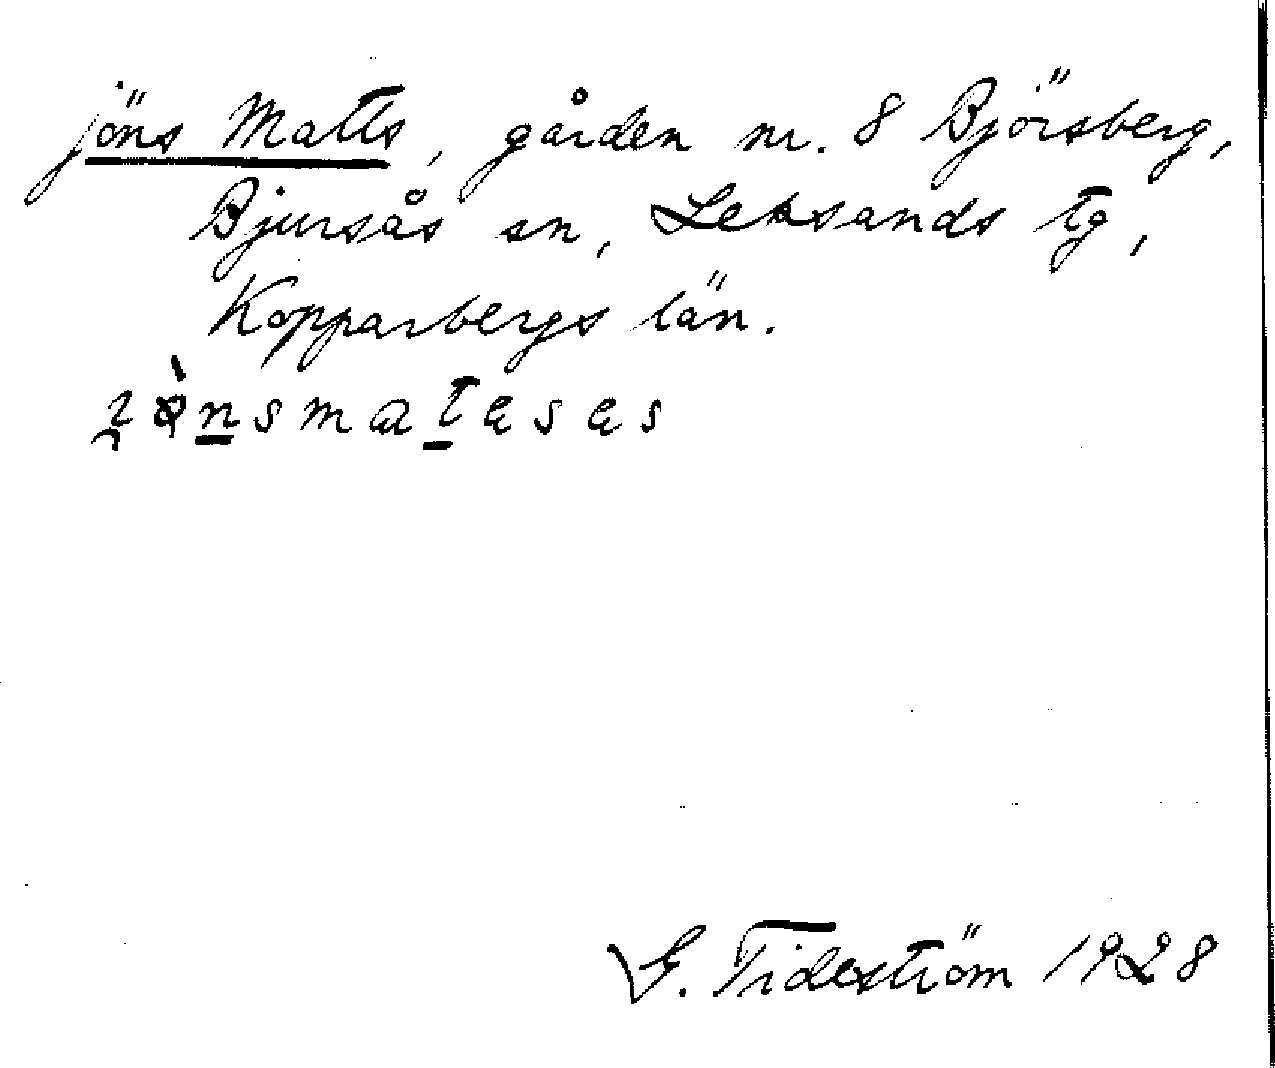 jöns Matts, gården nr. 8 Björsberg,
Bjursås sn, Leksands tg,
Kopparbergs län.
G. Tideström 1928